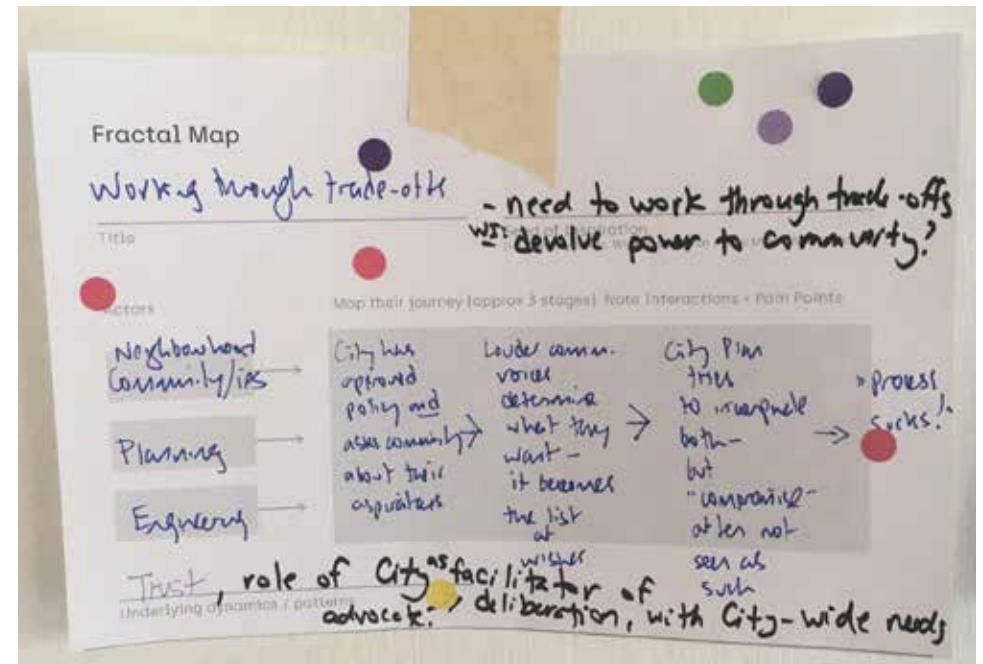 Fractal Map
Working through trade-offs
- need to work through trade-offs
devolve power to community?
Title
Actors
Map their journey (approx 3 stages). Note Interactions + Pain Points
Neighbourhood
Community/ies
Planning
Engineering
City has
approved
policy and
asks community
about their
aspirations
Louder comm.
voices
determine
what they
want –
it becomes
the list
of
wishes
City Plan
tries
to incorporate
both –
but
"compromise"
often not
seen as
such
process
sucks!
Trust, role of City as facilitator of
advocate? deliberation, with City-wide needs
Underlying dynamics / patterns